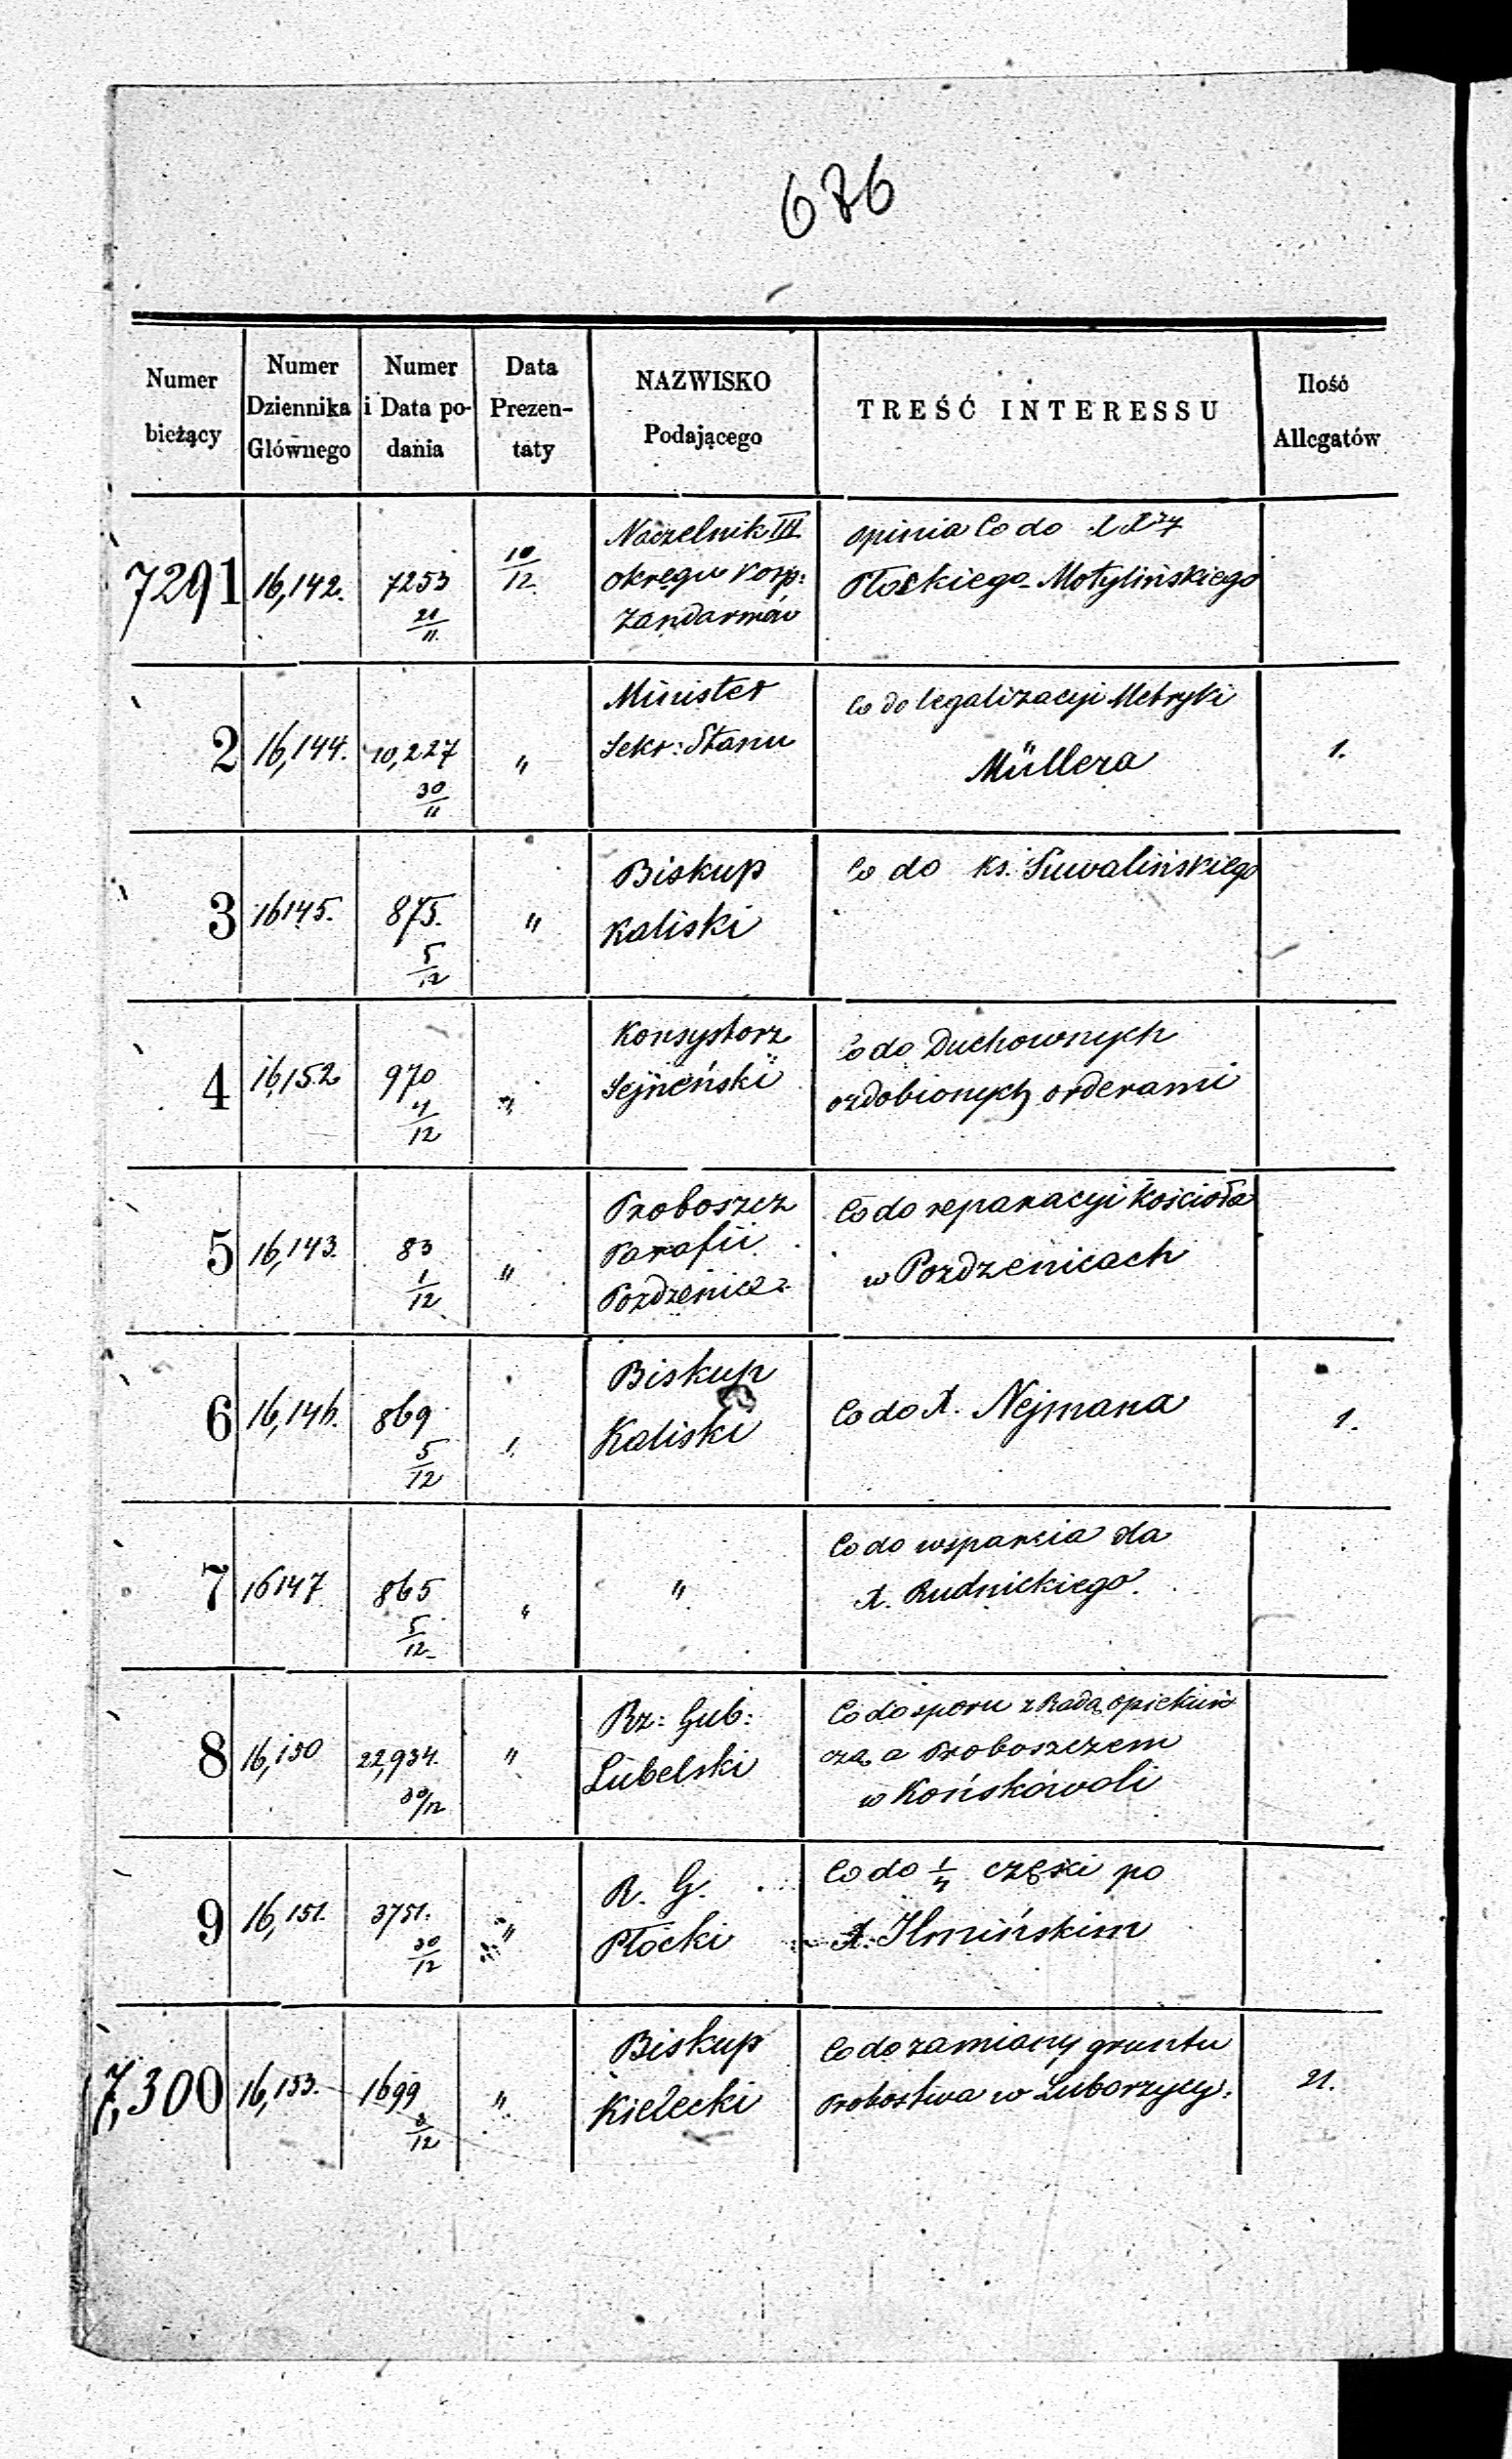 676
Numer bieżący | Numer Dziennika Głównego | Numer i Data podania | Data Prezentaty | NAZWISKO Podającego | TREŚĆ INTERESSU | Ilość Allegatów
7291 | 16,142. | 7253 21/11. | 10/12. | Naczelnik III okręgu Korp: Żandarmów | opinia Co do Płockiego Motylińskiego
2 | 16,144. | 10,227 30/11 | " | Minister Sekr: Stanu | Co do legalizacyi Metryki Müllera | 1.
3 | 16145. | 875. 5/12 | " | Biskup Kaliski | Co do Ks. Suwalińskiego
4 | 16,152 | 970 4/12 | " | Konsystorz Sejneński | Co do Duchownych ozdobionych orderami
5 | 16,143. | 83 1/12 | " | Proboszcz Parafii Pozdzenice | Co do reparacyi Kościoła w Pozdzenicach
6 | 16,146. | 869 5/12 | " | Biskup Kaliski | Co do X. Nejmana | 1.
7 | 16147 | 865 5/12 | " | " | Co do wsparcia dla X. Rudnickiego.
8 | 16,150 | 22,934. 30/12 | " | Rz: Gub: Lubelski | Co do sporu z Radą opiekuńczą a Proboszczem w Końskowoli
9 | 16,151. | 3751. 30/12 | " | R. G. Płocki | Co do 1/4 części po X. Ilmińskim
7,300 | 16,153. | 1699 /12 | " | Biskup Kielecki | Co do zamiany gruntu probostwa w Luborzycy. | 21.